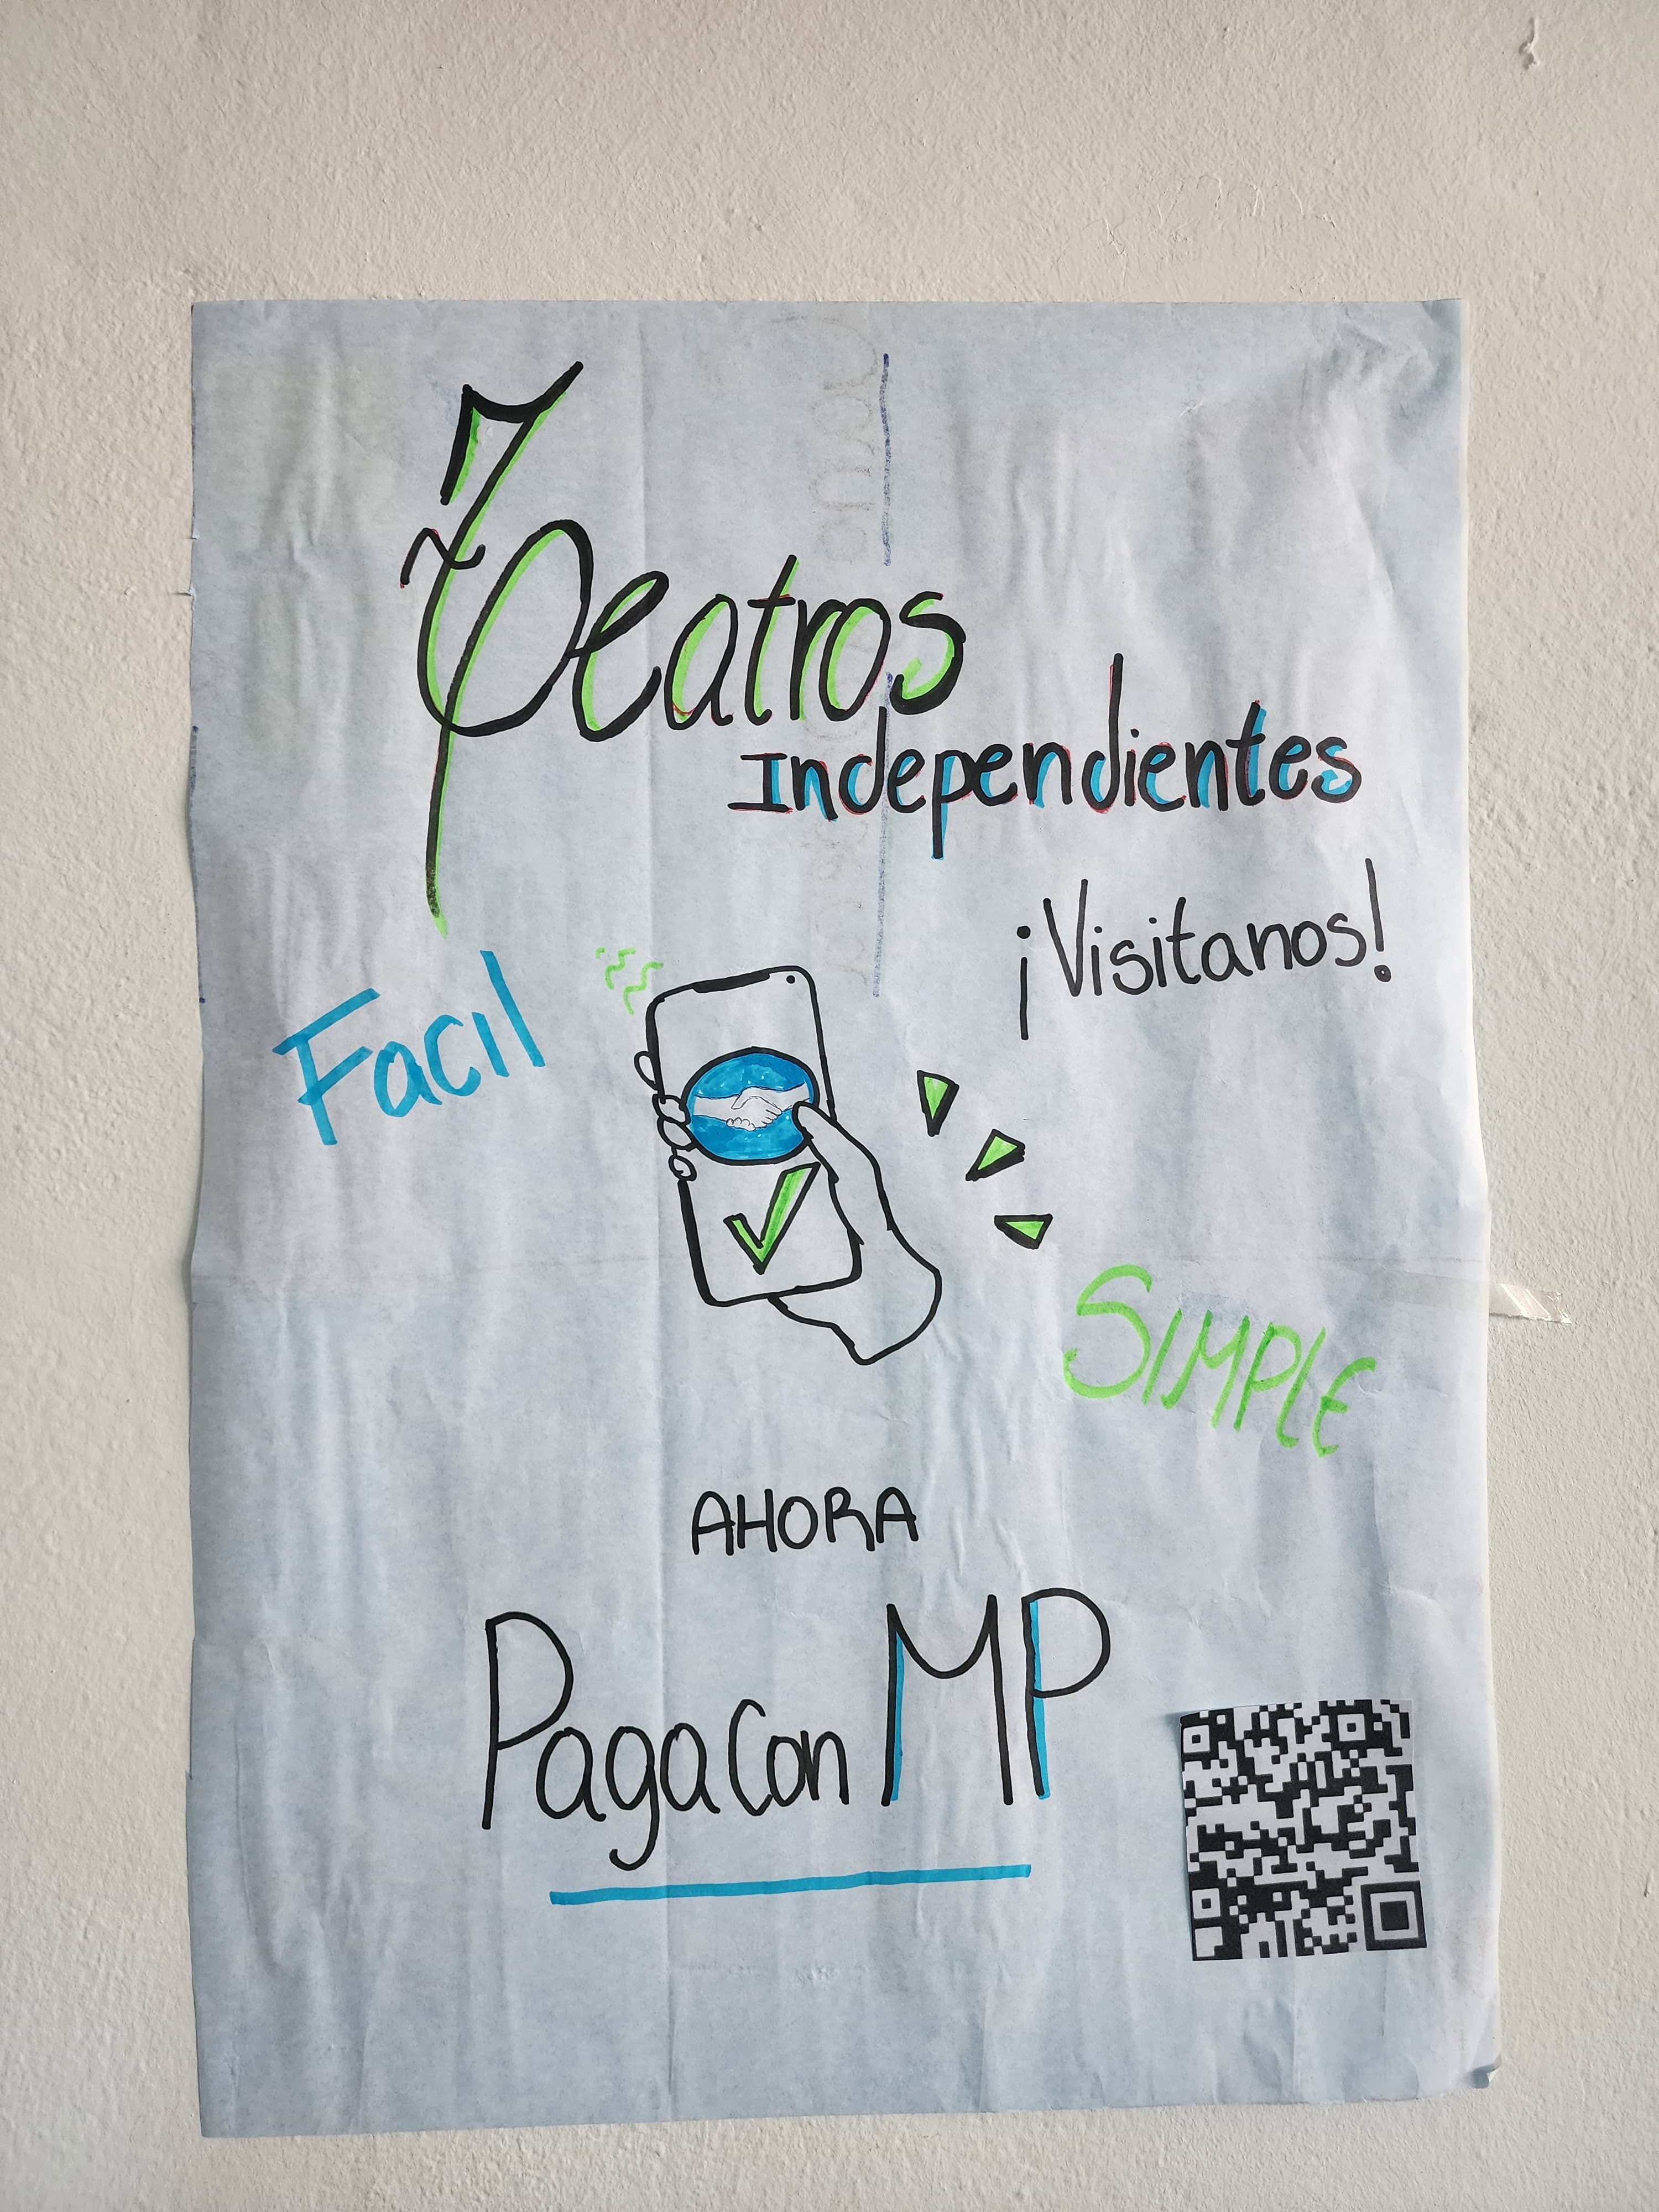 Teatros
Independientes
¡Visitanos!
Facil
SIMPLE
AHORA
Paga Con MP